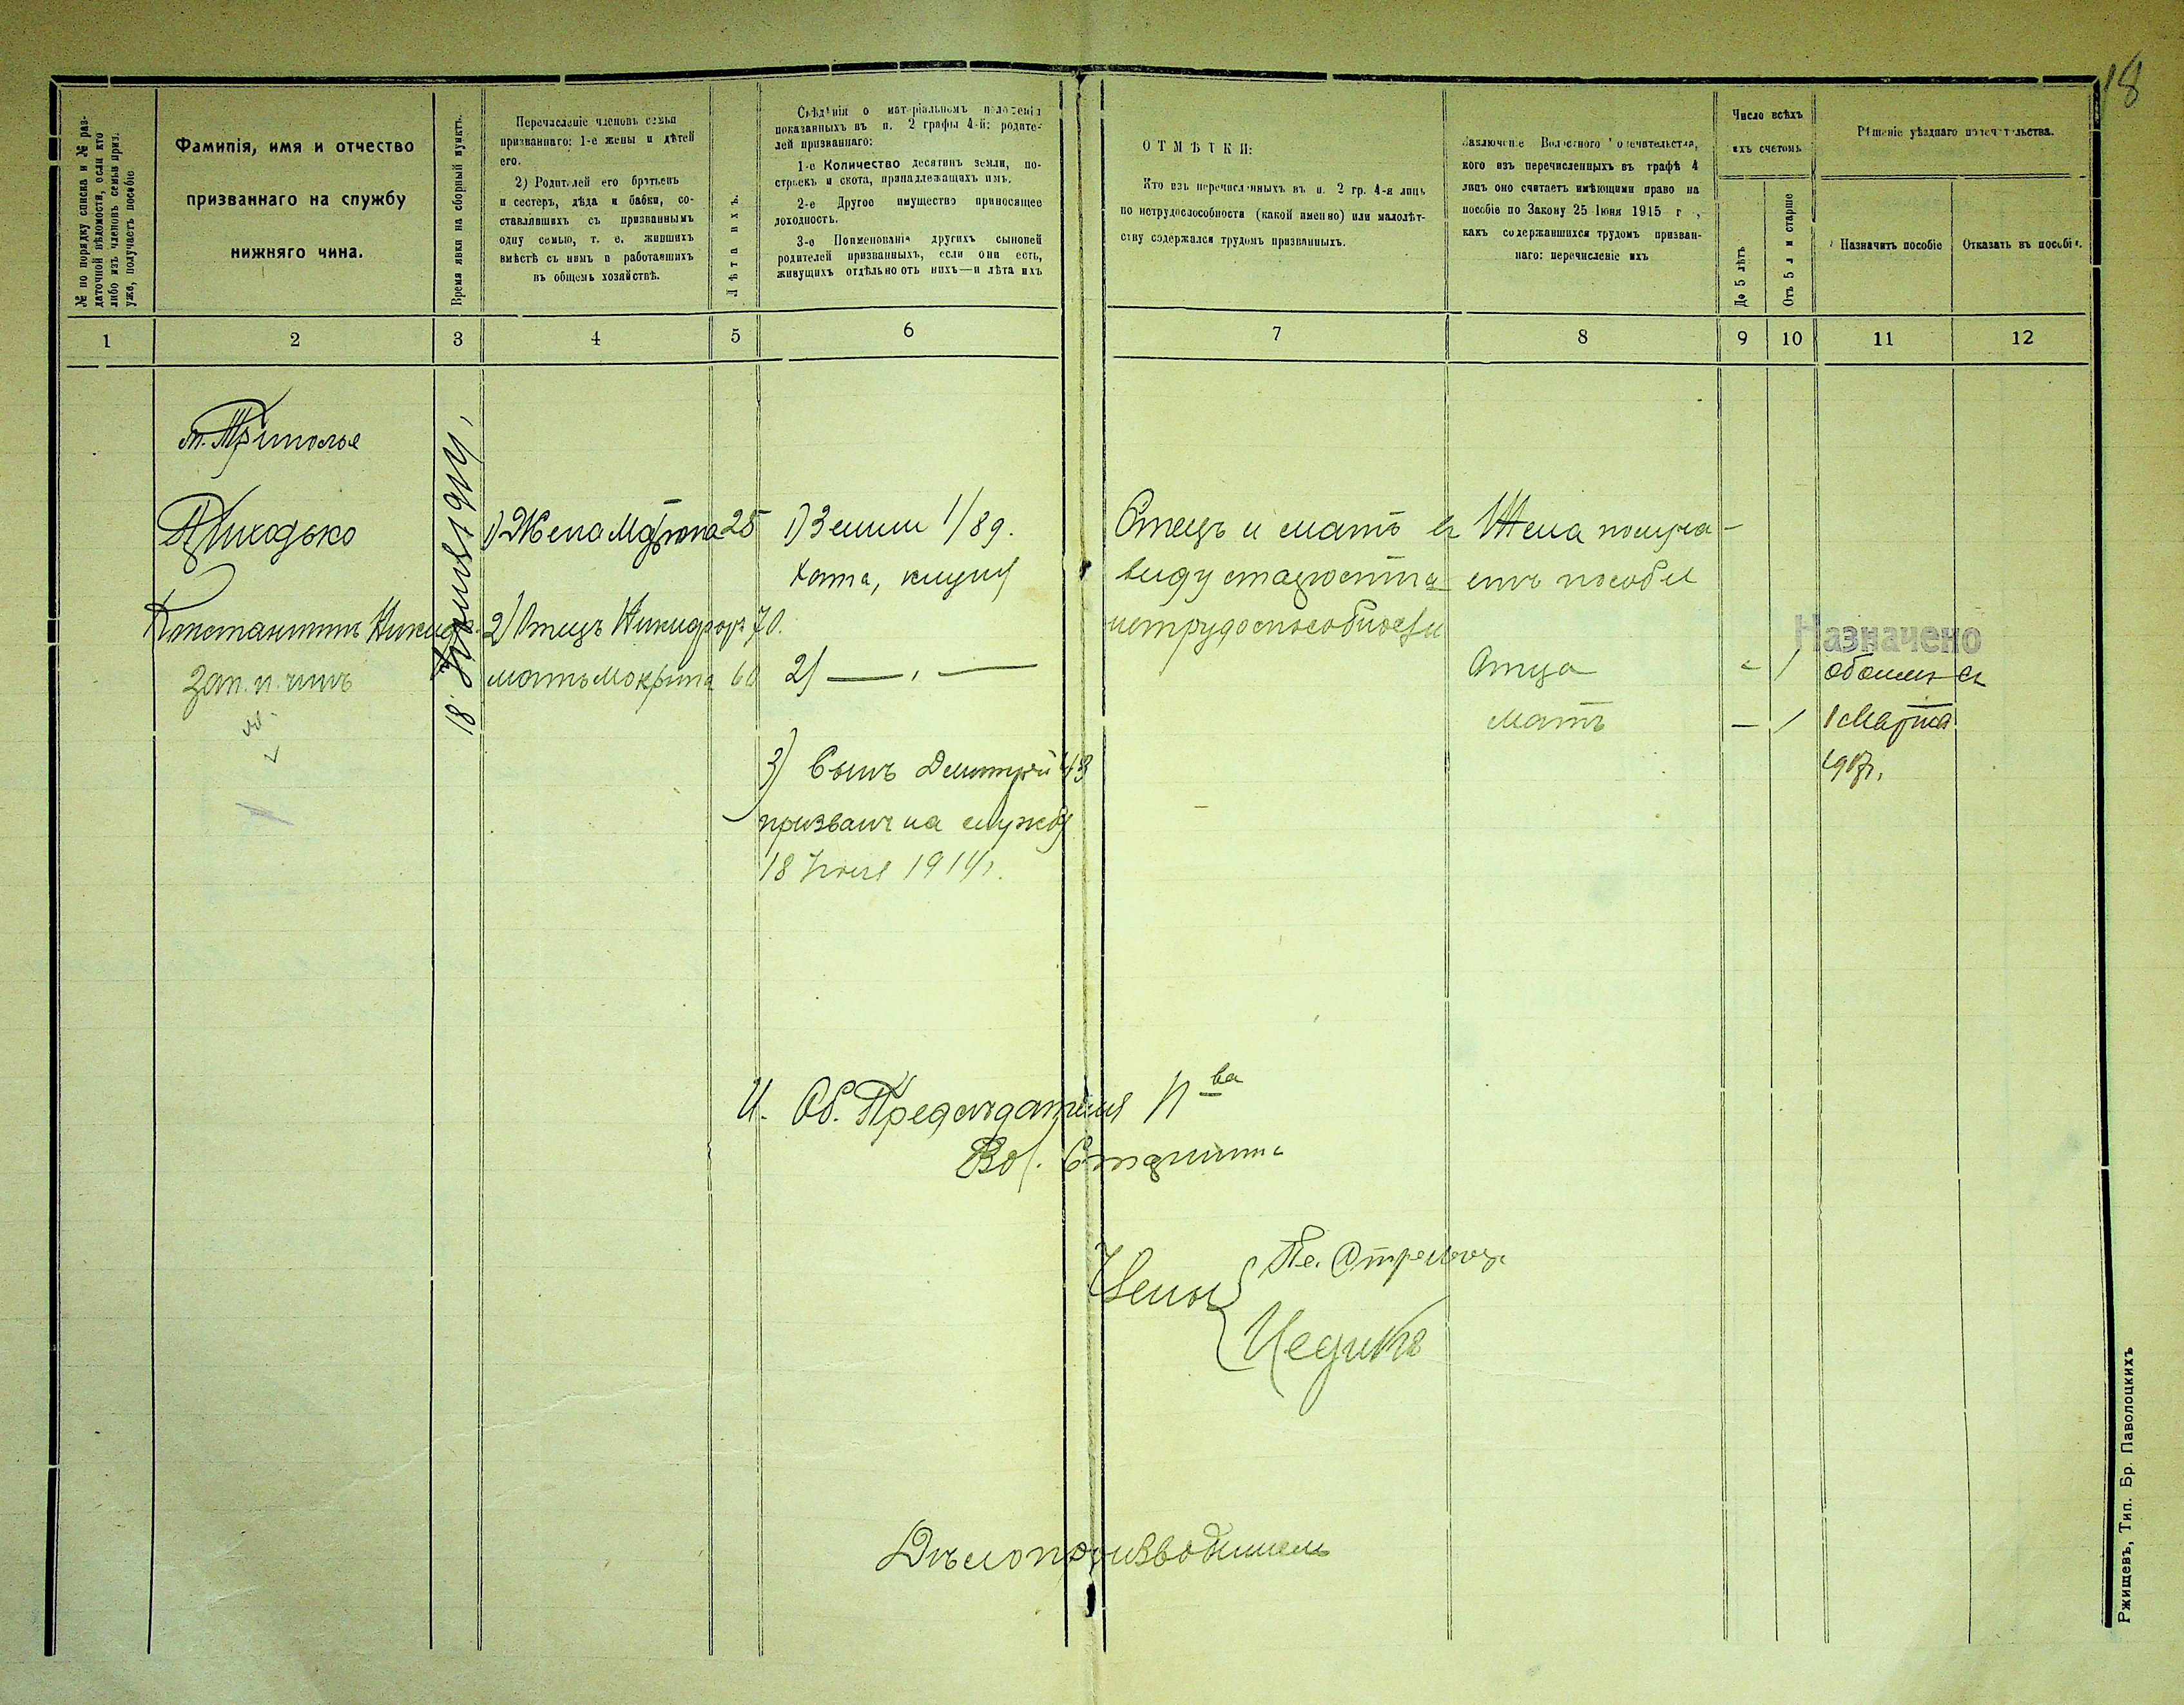 18
№ по порядку списка и № раз-
даточной вѣдомости, если кто
либо изъ членовъ семьи приз.
уже, получаетъ пособіе
Фамилія, имя и отчество
призваннаго на службу
нижняго чина.
Время явки на сборный пунктъ.
Перечисленіе членовъ семьи
призваннаго: 1-е жены и дѣтей
его.
2) Родителей его братьевъ
и сестеръ, дѣда и бабки, со-
ставлявшихъ съ призваннымъ
одну семью, т. е. жившихъ
вмѣстѣ съ нимъ и работавшихъ
въ общемъ хозяйствѣ.
Лѣта ихъ.
Свѣдѣнія о матеріальномъ положеніи
показанныхъ въ п. 2 графы 4-й: родите-
лей призваннаго:
1-е Количество десятинъ земли, по-
строекъ и скота, принадлежащихъ имъ.
2-е Другое имущество приносящее
доходность.
3-е Поименованіе другихъ сыновей
родителей призванныхъ, если они есть,
живущихъ отдѣльно отъ нихъ—и лѣта ихъ
ОТМѢТКИ:
Кто изъ перечисленныхъ въ п. 2 гр. 4-я лицъ
по нетрудоспособности (какой именно) или малолѣт-
ству содержался трудомъ призванныхъ.
Заключеніе Волостного Попечительства,
кого изъ перечисленныхъ въ графѣ 4
лицъ оно считаетъ имѣющими право на
пособіе по Закону 25 Іюня 1915 г.,
какъ содержавшихся трудомъ призван-
наго: перечисленіе ихъ
Число всѣхъ
ихъ счетомъ
До 5 лѣтъ
Отъ 5 л и старше
Рѣшеніе уѣзднаго попечительства.
Назначить пособіе
Отказать въ пособіи.
1 2 3 4 5 6 7 8 9 10 11 12
м. Триполье
Приходько
Константинъ Никиф.
Зап. н. чинъ
18 Іюля 1914 г.
1) Жена Мотрона 25
2) Отецъ Никифоръ 70.
мать Мокрина 60
1) Земли 1/8 д.
хата, клуня
2) — " —
3) Сынъ Дмитрій 43
призванъ на службу
18 Іюля 1914 г.
Отецъ и мать въ
виду старости
нетрудоспособности
Жена получа-
етъ пособіе
Отца - 1
Мать — 1
Назначено
обоимъ съ
1 Марта
1917 г.
И. Об. Предсѣдателя П-ва
Вол. Старшина
Члены
Цедикъ
Дѣлопроизводитель
Ржищевъ, Тип. Бр. Паволоцкихъ